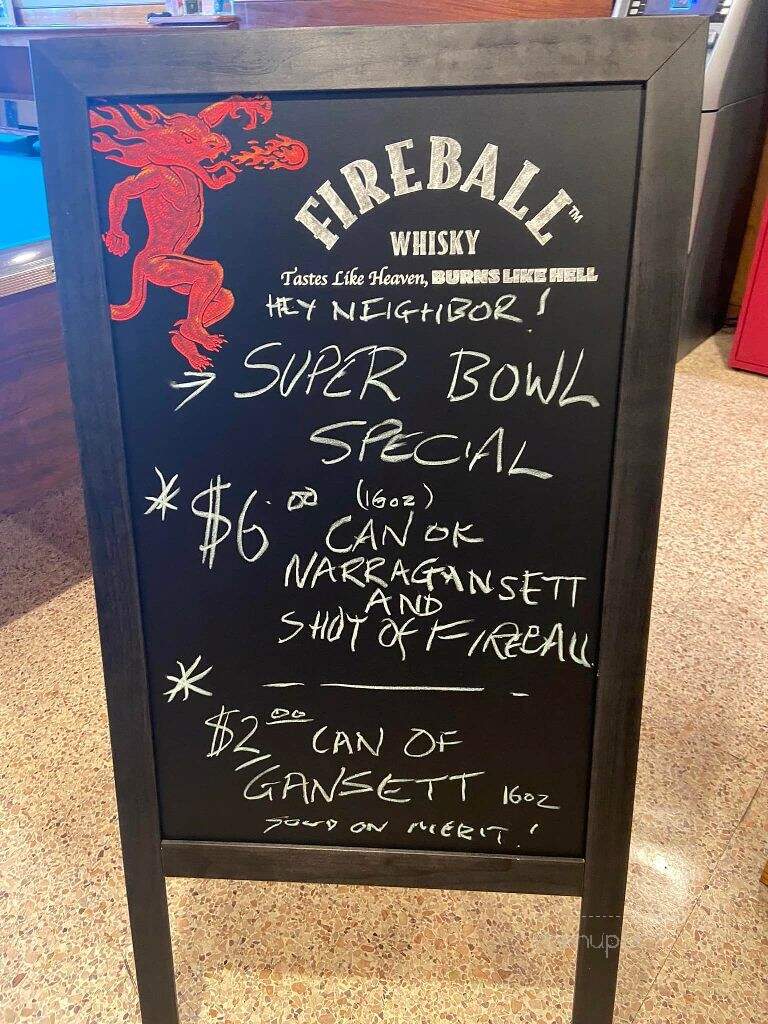 FIREBALL™
WHISKY
Tastes Like Heaven, BURNS LIKE HELL
HEY NEIGHBOR!
→ SUPER BOWL
SPECIAL
* $6.00 (16oz)
CAN OF
NARRAGANSETT
AND
SHOT OF FIREBALL
*
$2.00 CAN OF
GANSETT 16oz
SOLD ON MERIT!